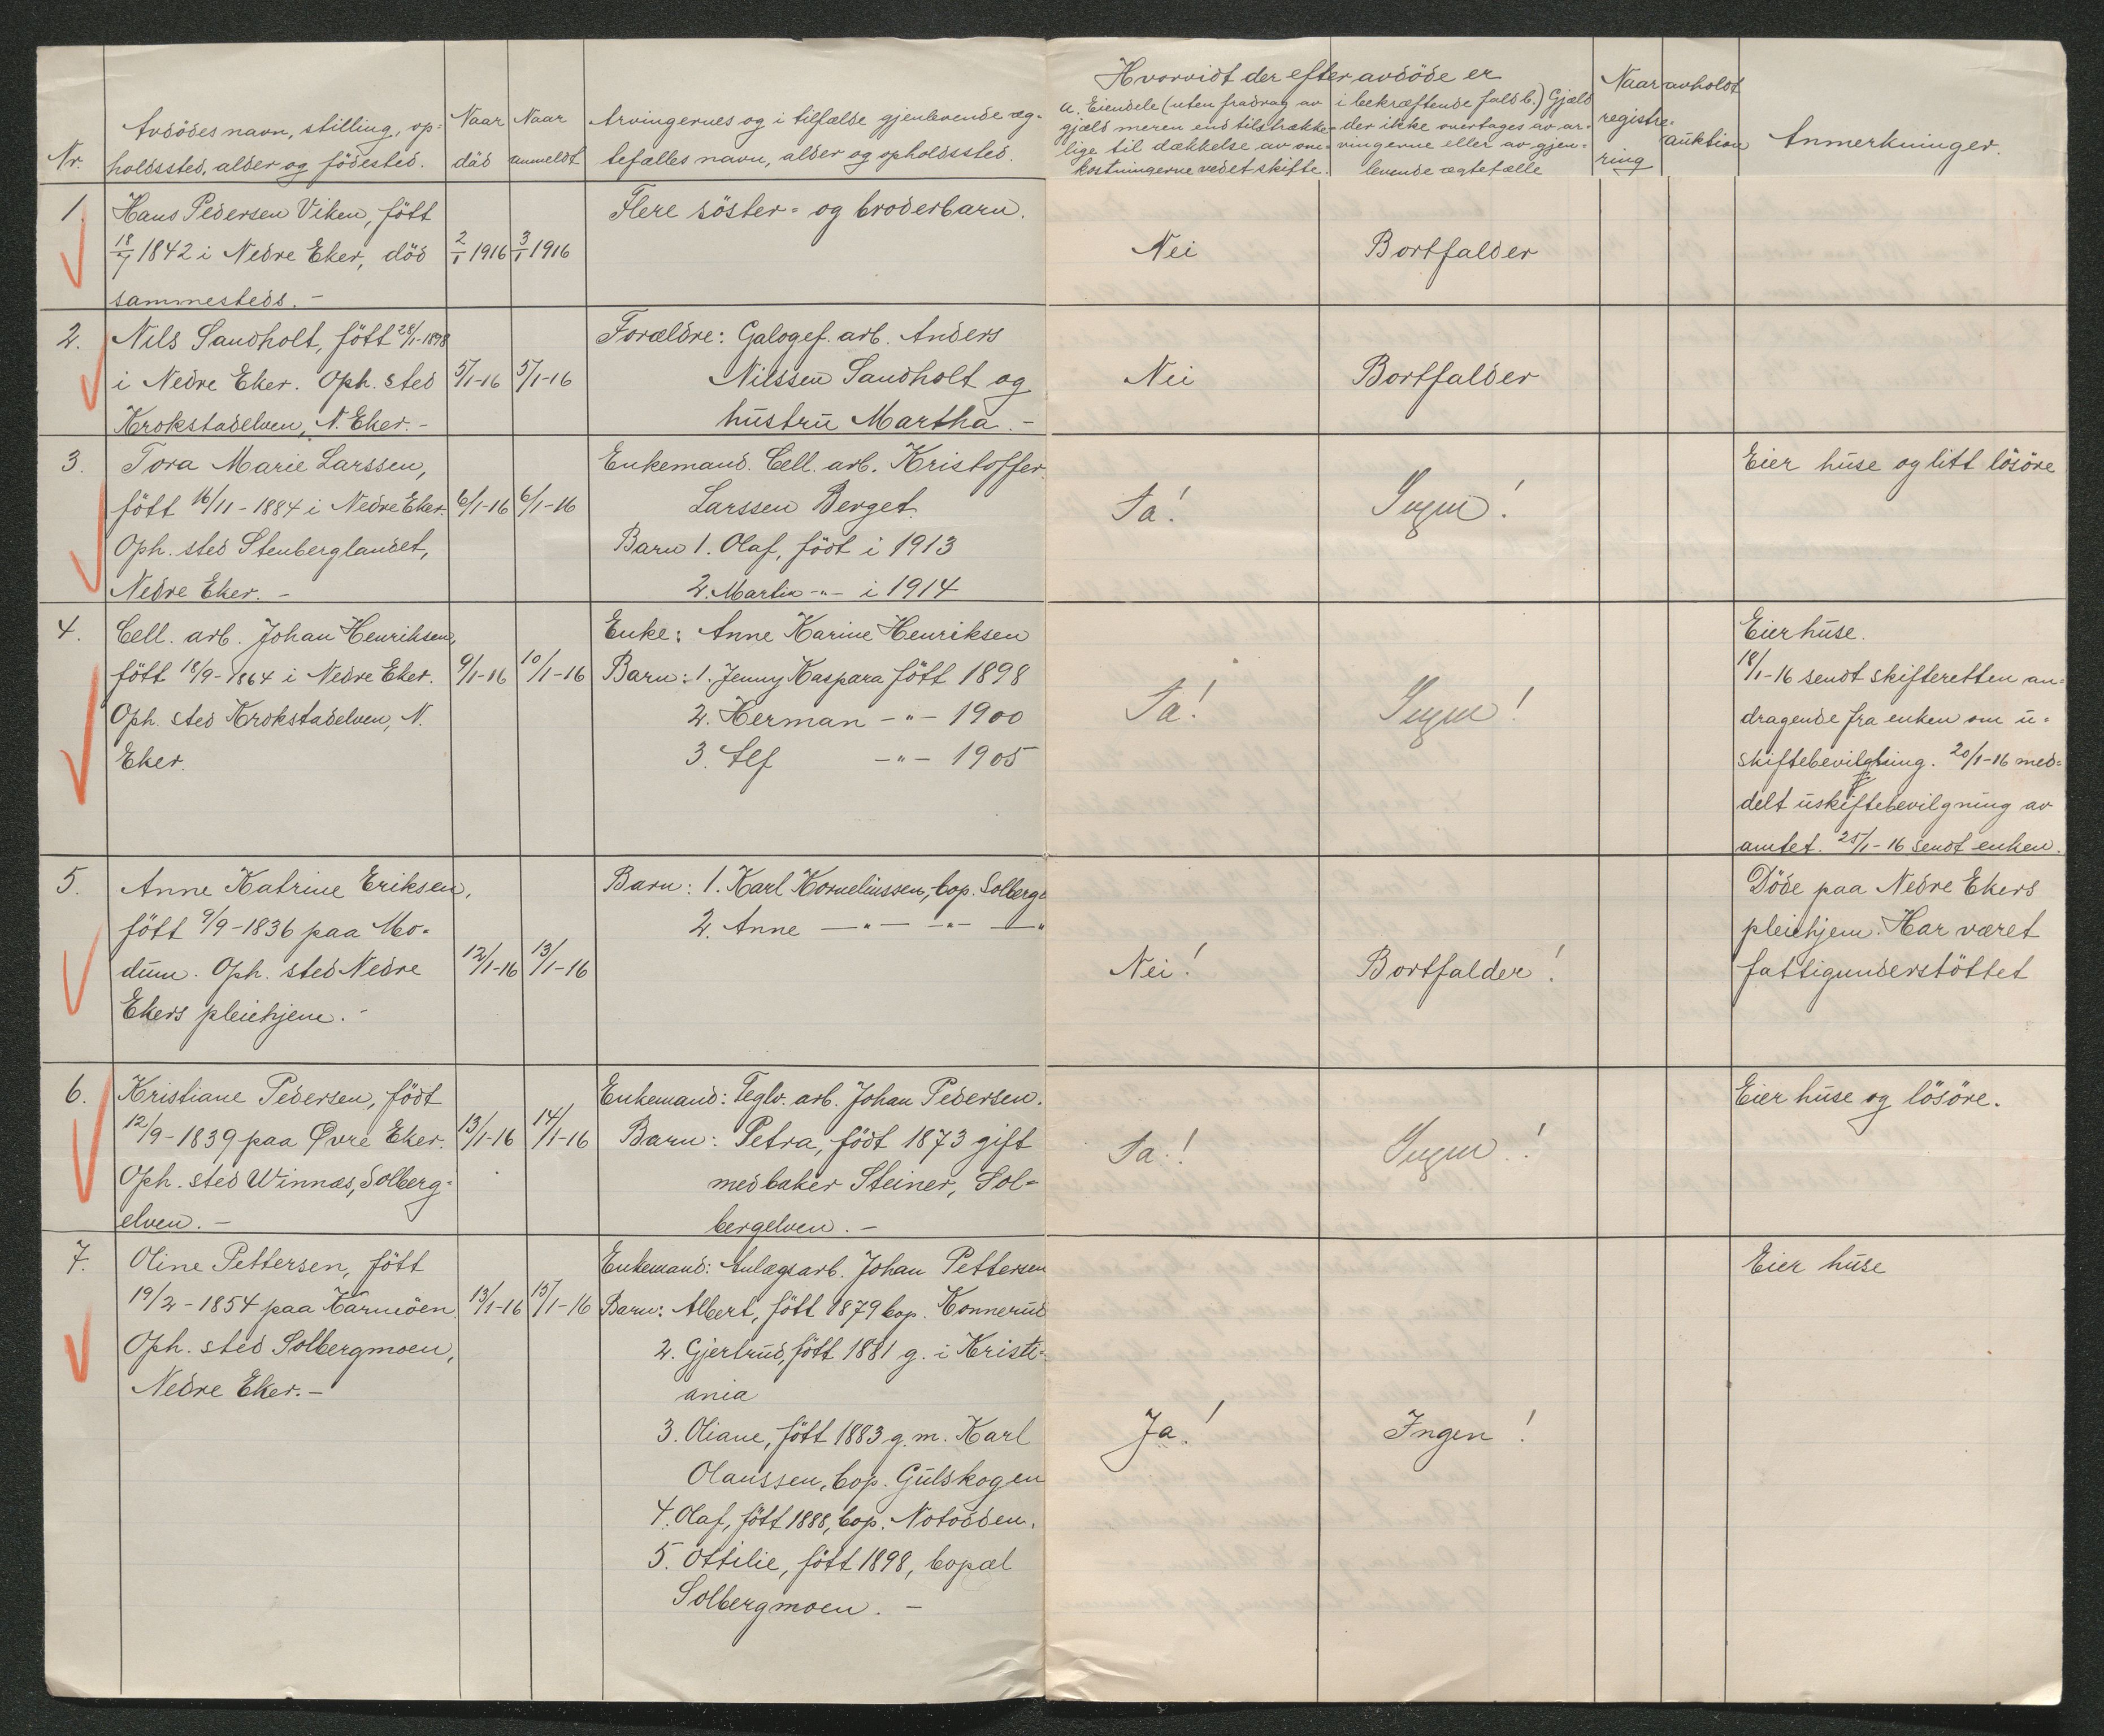 Nr.
Avdödes navn, stilling, op-
holdssted, alder og födested.
Naar
död
Naar
anmeldt
Arvingernes og i tilfælde gjenlevende æg-
tefælles navn, alder og opholdssted.
Hvorvidt der efter avdöde er
a. Eiendele (uten fradrag av
gjæld meren end tilstrække-
lige til dækkelse av om-
kostningerne vedet skifte.
i bekræftende fald b.) Gjæld
der ikke overtages av ar-
vingerne eller av gjen-
levende ægtefælle
Naar avholdt
registre-
ring
auktion
Anmerkninger.
1.
Hans Pedersen Viken, fött
18/7 1842 i Nedre Eker, död
sammesteds. -
2/1 1916
3/1 1916
Flere söster- og broderbarn.
Nei
Bortfalder
2.
Nils Sandholt, fött 28/1-1898
i Nedre Eker. Oph. sted
Krokstadelven, N. Eker. -
5/1-16
5/1-16
Forældre: Galogef. arb. Anders
Nilssen Sandholt og
hustru Martha. -
Nei
Bortfalder
3.
Tora Marie Larssen,
fött 16/11-1884 i Nedre Eker.
Oph. sted Stenberglandet,
Nedre Eker. -
6/1-16
6/1-16
Enkemand. Cell. arb. Kristoffer
Larssen Berget.
Barn 1. Olaf, födt i 1913
2. Martin -"- i 1914
Ja!
Ingen!
Eier huse og litt lösöre
4.
Cell. arb. Johan Henriksen,
fött 18/9-1864 i Nedre Eker.
Oph. sted Krokstadelven, N.
Eker.
9/1-16
10/1-16
Enke: Anne Karine Henriksen
Barn: 1. Jenny Kaspara fött 1898
2. Herman -"- 1900
3. Alf -"- 1905
Ja!
Ingen!
Eier huse.
18/1-16 sendt skifteretten an-
dragende fra enken om u-
skiftebevilgning. 20/1-16 med-
delt uskiftebevilgning av
amtet. 25/1-16 sendt enken.
5.
Anne Katrine Eriksen,
fött 9/9-1836 paa Mo-
dum. Oph. sted Nedre
Ekers pleiehjem. -
12/1-16
13/1-16
Barn: 1. Karl Korneliussen, bop. Solberg-
2. Anne -"- -"- -"-
Nei!
Bortfalder!
Döde paa Nedre Ekers
pleiehjem. Har været
fattigunderstöttet
6.
Kristiane Pedersen, födt
12/9-1839 paa Øvre Eker.
Oph. sted Winnæs, Solberg-
elven. -
13/1-16
14/1-16
Enkemand: Teglv. arb. Johan Pedersen.
Barn: Petra, födt 1873 gift
med baker Steiner, Sol-
bergelven. -
Ja!
Ingen!
Eier huse og lösöre.
7.
Oline Pettersen, fött
19/2-1854 paa Karmöen.
Oph. sted Solbergmoen,
Nedre Eker. -
13/1-16
15/1-16
Enkemand: Anlægsarb. Johan Pettersen
Barn: Albert, fött 1879 bop. Konnerud
2. Gjertrud, fött 1881 g. i Kristi-
ania
3. Oliane, fött 1883 g. m. Karl
Olaussen, bop. Gulskogen
4. Olaf, fött 1888, bop. Notodden.
5. Ottilie, fött 1898, bopæl
Solbergmoen. -
Ja!
Ingen!
Eier huse